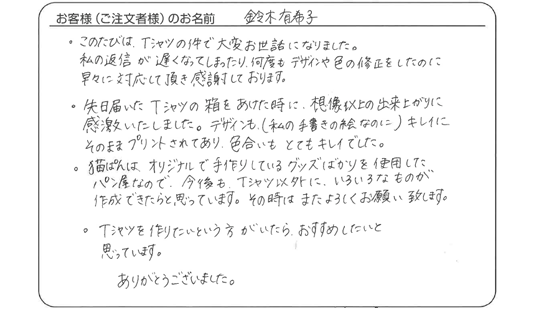 お客様（ご注文者様）のお名前 鈴木有希子
・このたびは、Tシャツの件で大変お世話になりました。
私の返信が遅くなってしまったり、何度もデザインや色の修正をしたのに
早々に対応して頂き感謝しております。
・先日届いたTシャツの箱をあけた時に、想像以上の出来上がりに
感激いたしました。デザインも、（私の手書きの絵なのに）キレイに
そのままプリントされてあり、色合いもとてもキレイでした。
・猫ぱんは、オリジナルで手作りしているグッズばかりを使用した
パン屋なので、今後も、Tシャツ以外に、いろいろなものが
作成できたらと思っています。その時はまたよろしくお願い致します。
・Tシャツを作りたいという方がいたら、おすすめしたいと
思っています。
ありがとうございました。